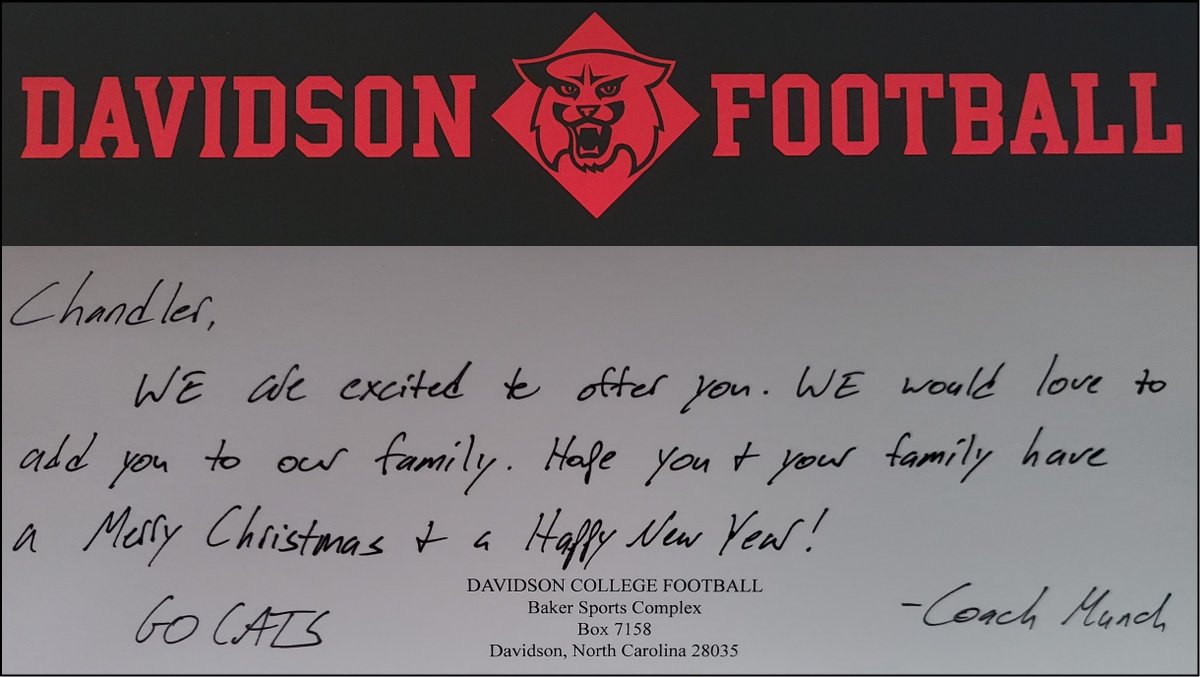 DAVIDSON FOOTBALL
Chandler,
WE are excited to offer you. WE would love to
add you to our family. Hope you + your family have
a Merry Christmas + a Happy New Year!
DAVIDSON COLLEGE FOOTBALL
Baker Sports Complex
Box 7158
Davidson, North Carolina 28035
GO CATS
-Coach Munch